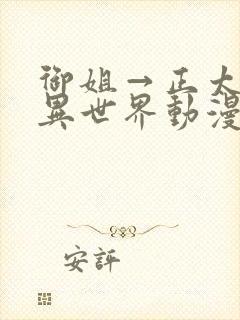 御姐→正太
異世界動漫
安評